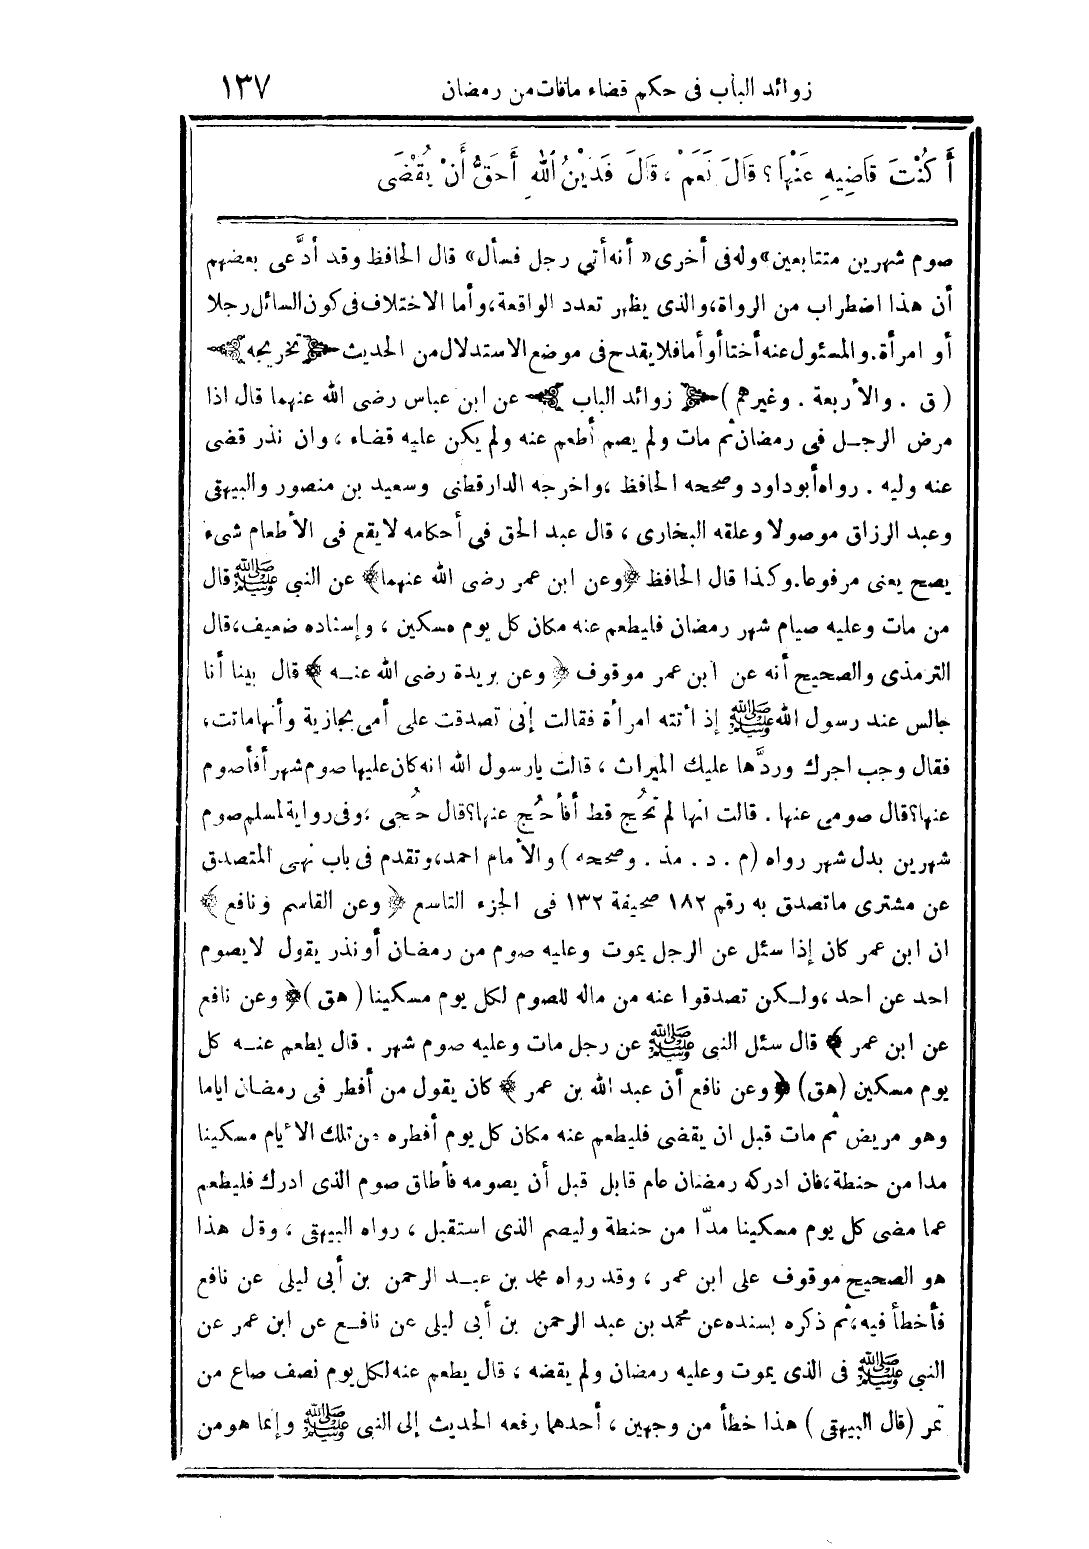 زوائد الباب فى حكم قضاء مافات من رمضان ١٣٧
أَكُنْتَ قَاضِيهِ عَنْهَا؟ قَالَ نَعَمْ ، قَالَ فَدَيْنُ اللهِ أَحَقُّ أَنْ يُقْضَى
صوم شهرين متتابعين» وله فى أخرى « أنه أتي رجل فسأل» قال الحافظ وقد أدَّعى بعضهم
أن هذا اضطراب من الرواة، والذى يظهر تعدد الواقعة، وأما الاختلاف فى كون السائل رجلا
أو امرأة. والمسئول عنه أختا أو أما فلا يقدح فى موضع الاستدلال من الحديث ﴿ تخريجه ﴾
( ق . والأربعة . وغيرهم ) ﴿ زوائد الباب ﴾ عن ابن عباس رضى الله عنهما قال اذا
مرض الرجـل فى رمضان ثم مات ولم يصم أطعم عنه ولم يكن عليه قضاء ، وان نذر قضى
عنه وليه . رواه أبوداود وصححه الحافظ ، واخرجه الدارقطنى وسعيد بن منصور والبيهقى
وعبد الرزاق موصولا وعلقه البخارى ، قال عبد الحق في أحكامه لايقع فى الأطعام شىء
يصح يعنى مرفوعا. وكذا قال الحافظ ﴿ وعن ابن عمر رضى الله عنهما ﴾ عن النبى ﷺ قال
من مات وعليه صيام شهر رمضان فليطعم عنه مكان كل يوم مسكين ، وإسناده ضعيف، قال
الترمذى والصحيح أنه عن ابن عمر موقوف ﴿ وعن بريدة رضى الله عنـه ﴾ قال بينا أنا
جالس عند رسول الله ﷺ إذ أتته امرأة فقالت إنى تصدقت على أمى بجارية وأنها ماتت،
فقال وجب اجرك وردَّها عليك الميراث ، قالت يارسول الله انه كان عليها صوم شهر أفأصوم
عنها؟ قال صومى عنها . قالت انها لم تحُج قط أفأحُج عنها؟ قال حُجى ، وفى رواية لمسلم صوم
شهرين بدل شهر رواه (م . د . مذ . وصححه ) والأمام احمد، وتقدم فى باب نهى المتصدق
عن مشترى ماتصدق به رقم ١٨٢ صحيفة ١٣٢ فى الجزء التاسع ﴿ وعن القاسم ونافع ﴾
ان ابن عمر كان إذا سئل عن الرجل يموت وعليه صوم من رمضان أو نذر يقول لايصوم
احد عن احد ، ولـكن تصدقوا عنه من ماله للصوم لكل يوم مسكينا ( هق ) ﴿ وعن نافع
عن ابن عمر ﴾ قال سئل النبى ﷺ عن رجل مات وعليه صوم شهر . قال يطعم عنـه كل
يوم مسكين (هق) ﴿ وعن نافع أن عبد الله بن عمر ﴾ كان يقول من أفطر فى رمضان اياما
وهو مريض ثم مات قبل ان يقضى فليطعم عنه مكان كل يوم أفطره من تلك الأيام مسكينا
مدا من حنطة، فان ادركه رمضان عام قابل قبل أن يصومه فأطاق صوم الذى ادرك فليطعم
عما مضى كل يوم مسكينا مدّا من حنطة وليصم الذى استقبل ، رواه البيهقى ، وقال هذا
هو الصحيح موقوف على ابن عمر ، وقد رواه محمد بن عبـد الرحمن بن أبى ليلى عن نافع
فأخطأ فيه، ثم ذكره بسنده عن محمد بن عبد الرحمن بن أبى ليلى عن نافـع عن ابن عمر عن
النبى ﷺ فى الذى يموت وعليه رمضان ولم يقضه ، قال يطعم عنه لكل يوم نصف صاع من
تمر ( قال البيهقى ) هذا خطأ من وجهين ، أحدهما رفعه الحديث إلى النبى ﷺ وإنما هو من